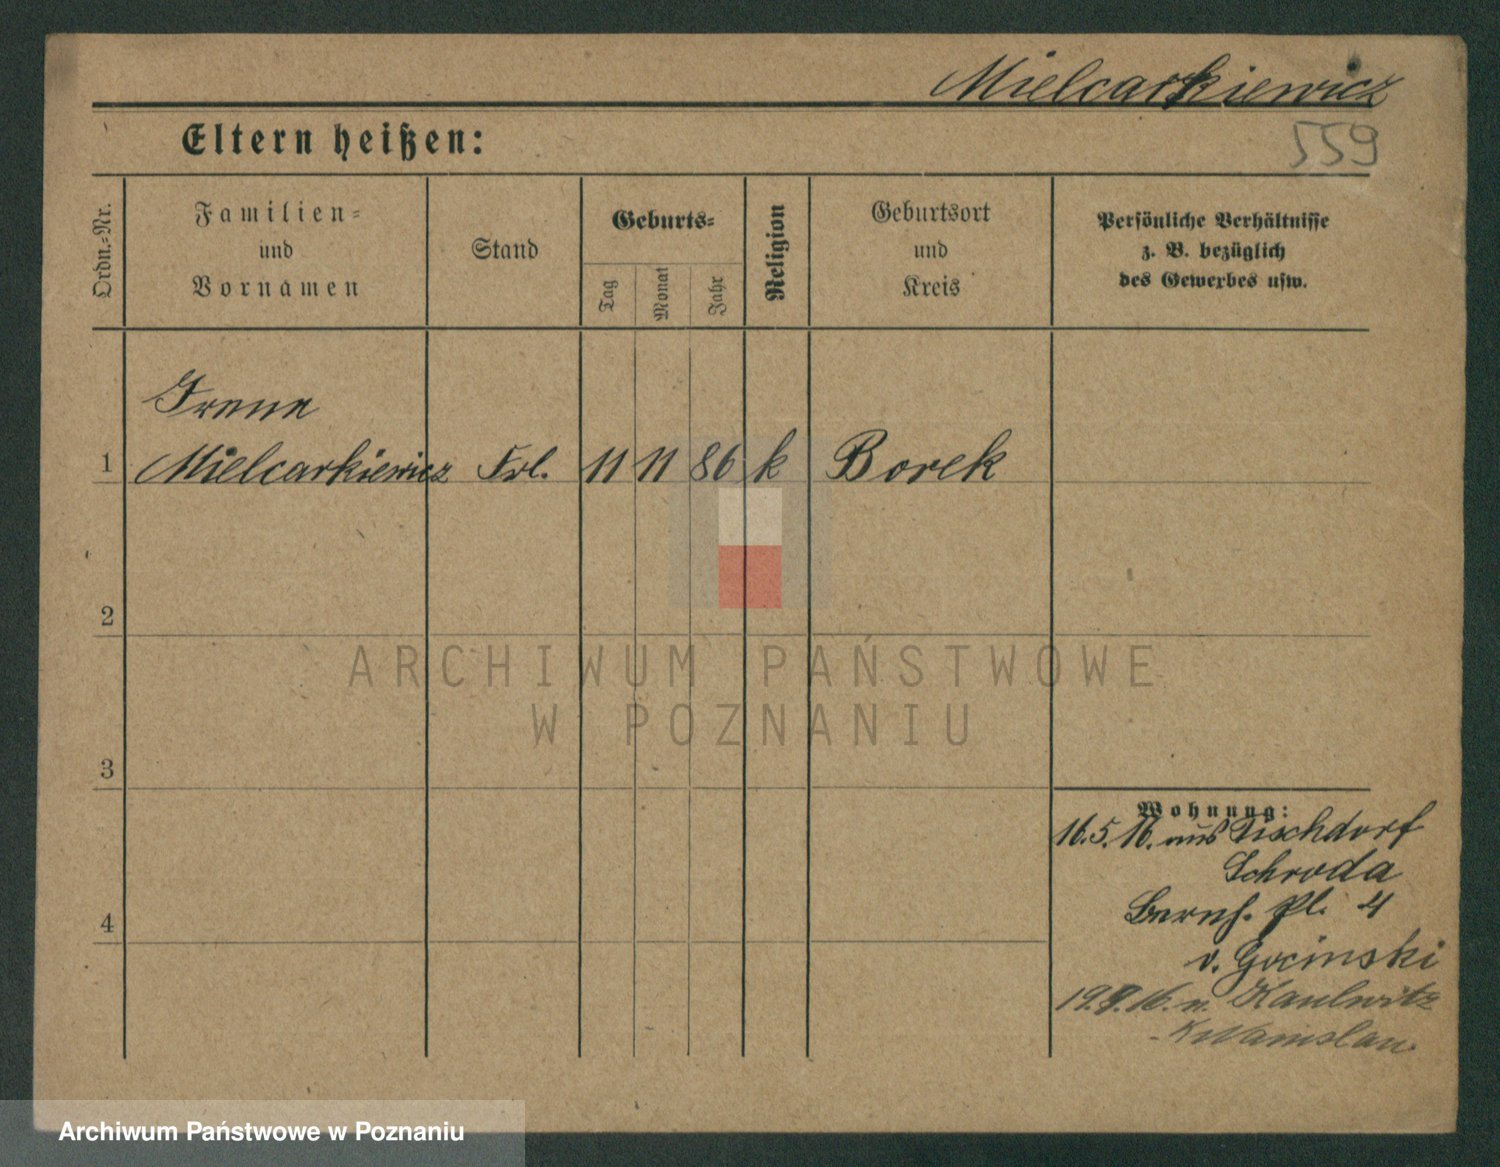 Mielcarkiewicz
Eltern heißen:
559
Ordn.=Nr.
Familien=
und
Vornamen
Stand
Geburts=
Tag
Monat
Jahr
Religion
Geburtsort
und
Kreis
Persönliche Verhältnisse
z. B. bezüglich
des Gewerbes usw.
Irene
1 Mielcarkiewicz Frl. 11 11 86 k Borek
2
ARCHIWUM PAŃSTWOWE
W POZNANIU
3
Wohnung:
16.5.16. aus Tischdorf
Schroda
4
Bernh. Pl. 4
v. Gocinski
19.8.16. n. Kaulwitz
Archiwum Państwowe w Poznaniu